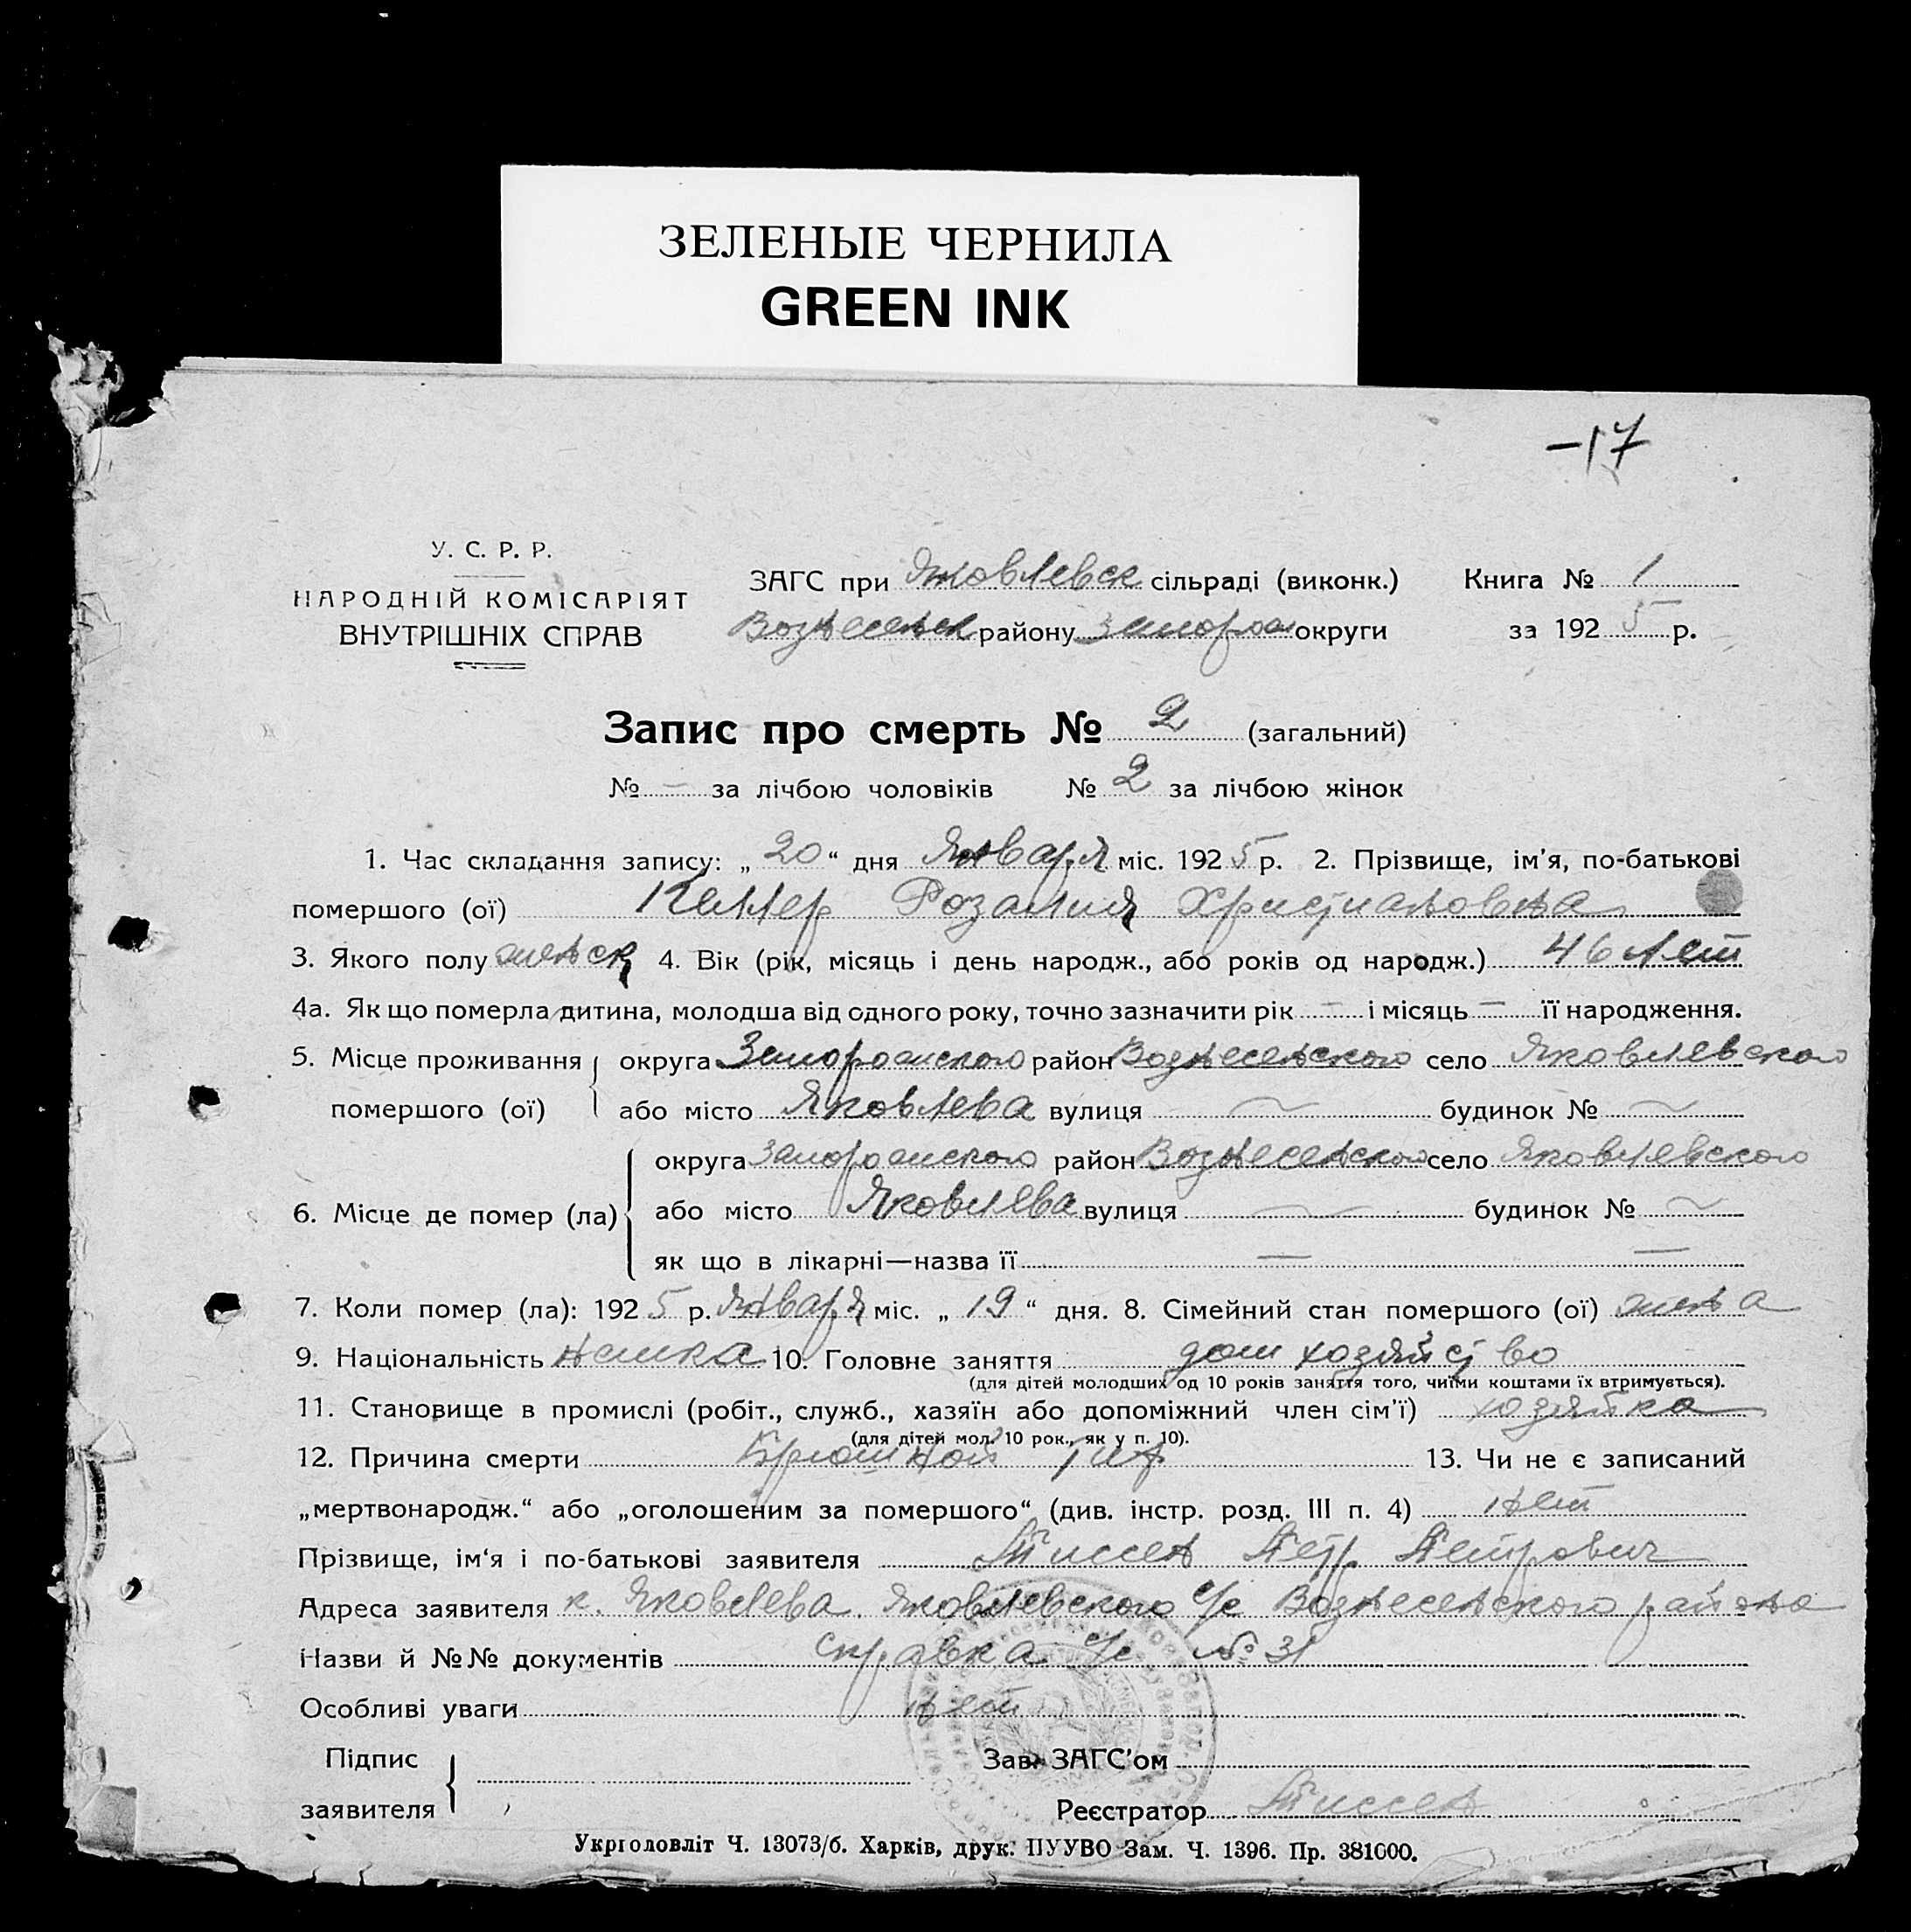 ЗЕЛЕНЫЕ ЧЕРНИЛА
GREEN INK
-17
У. С. Р. Р.
НАРОДНІЙ КОМІСАРІЯТ
ВНУТРІШНІХ СПРАВ
ЗАГС при Яковлевск сільраді (виконк.) Книга № 1
Вознесенск району Запорож округи за 1925 р.
Запис про смерть № 2 (загальний)
№ — за лічбою чоловіків № 2 за лічбою жінок
1. Час складання запису: „20“ дня Января міс. 1925 р. 2. Прізвище, ім'я, по-батькові
помершого (ої) Келлер Розалия Христиановна
3. Якого полу женск 4. Вік (рік, місяць і день народж., або років од народж.) 46 лет
4а. Як що померла дитина, молодша від одного року, точно зазначити рік — і місяць — її народження.
5. Місце проживання округа Запорожского район Вознесенского село Яковлевского
помершого (ої) або місто Яковлева вулиця будинок №
округа Запорожского район Вознесенского село Яковлевского
6. Місце де помер (ла) або місто Яковлева вулиця будинок №
як що в лікарні—назва її — —
7. Коли помер (ла): 1925 р. Января міс. „19“ дня. 8. Сімейний стан помершого (ої) жена
9. Національність немка 10. Головне заняття дом хозяйство
(для дітей молодших од 10 років заняття того, чиїми коштами їх втримується).
11. Становище в промислі (робіт., служб., хазяїн або допоміжний член сім'ї) хозяйка
(для дітей мол. 10 рок., як у п. 10).
12. Причина смерти Брюшной тиф 13. Чи не є записаний
„мертвонародж.“ або „оголошеним за помершого“ (див. інстр. розд. III п. 4) нет
Прізвище, ім'я і по-батькові заявителя Тиссен Петр Петрович
Адреса заявителя к. Яковлева Яковлевского с/с Вознесенского района
Назви й №№ документів справка с/с № 31
Особливі уваги нет
Підпис
заявителя
Зав. ЗАГС'ом
Реєстратор Тиссен
Укрголовліт Ч. 13073/б. Харків, друк. ПУУВО Зам. Ч. 1396. Пр. 381000.